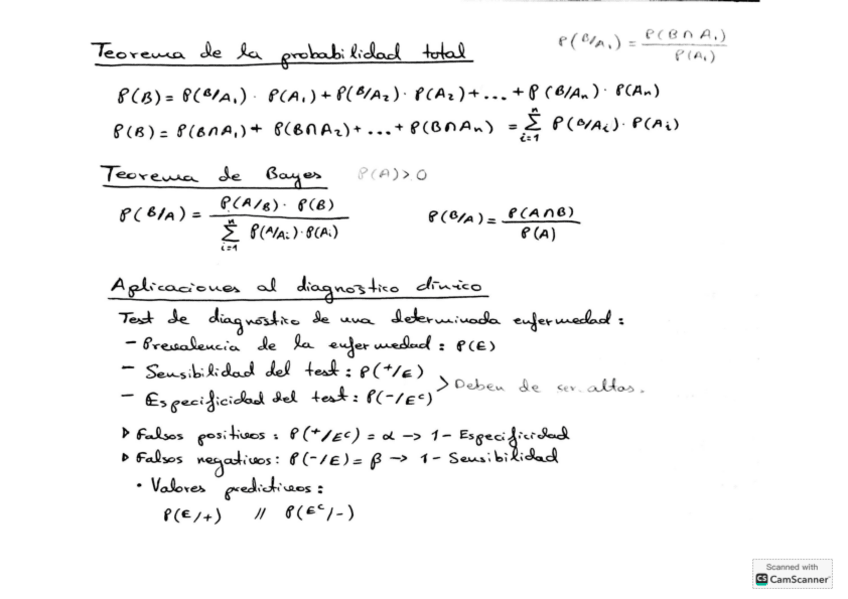 Teorema de la probabilidad total
P(B/A₁) = P(B∩A₁) / P(A₁)
P(B) = P(B/A₁) · P(A₁) + P(B/A₂) · P(A₂) + ... + P(B/Aₙ) · P(Aₙ)
P(B) = P(B∩A₁) + P(B∩A₂) + ... + P(B∩Aₙ) = Σⁿᵢ₌₁ P(B/Aᵢ) · P(Aᵢ)
Teorema de Bayes P(A) > 0
P(B/A) = P(A/B) · P(B) / Σⁿᵢ₌₁ P(A/Aᵢ) · P(Aᵢ)
P(B/A) = P(A∩B) / P(A)
Aplicaciones al diagnostico clinico
Test de diagnóstico de una determinada enfermedad :
- Prevalencia de la enfermedad : P(E)
- Sensibilidad del test : P(+/E)
- Especificidad del test : P(-/Eᶜ)
> Deben de ser altas.
▷ Falsos positivos : P(+/Eᶜ) = α → 1 - Especificidad
▷ Falsos negativos : P(-/E) = β → 1 - Sensibilidad
• Valores predictivos :
P(E/+) // P(Eᶜ/-)
Scanned with
CS CamScanner